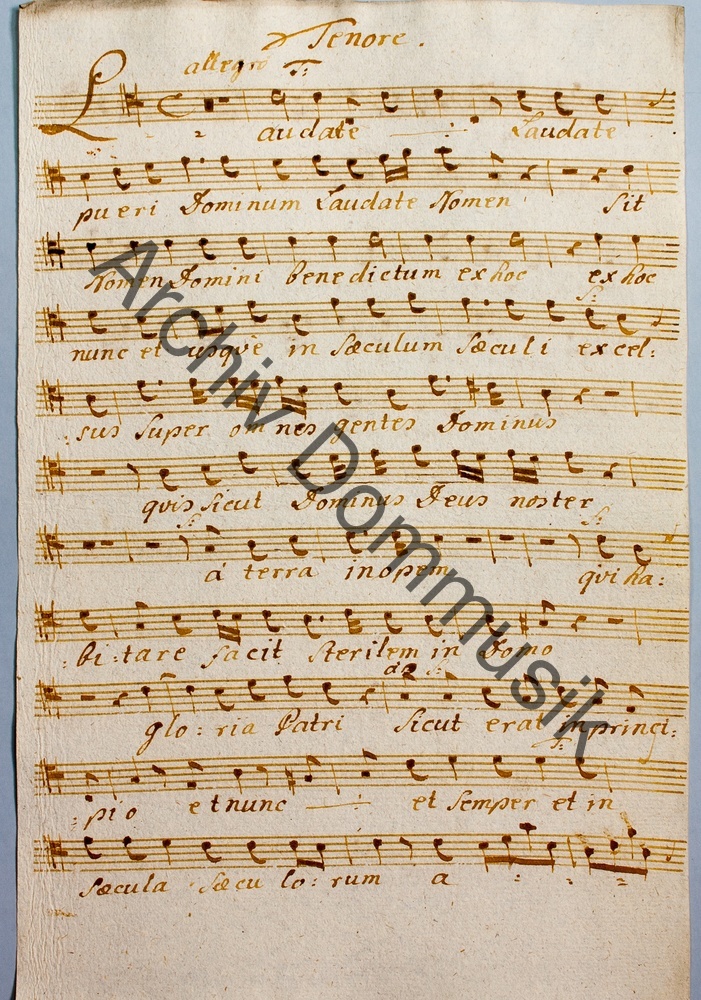 Tenore.
allegro T:
Laudate Laudate
pueri Dominum Laudate Nomen sit
Nomen Domini benedictum ex hoc ex hoc
S:
nunc et usque in sæculum sæculi excel:
:sus super omnes gentes Dominus
quis sicut Dominus Deus noster
S: S:
a terra inopem qui ha:
:bi:tare facit sterilem in Domo
S:
glo:ria Patri sicut erat in princi:
T:
:pio et nunc et semper et in
sæcula sæculo:rum a
Archiv Dommusik